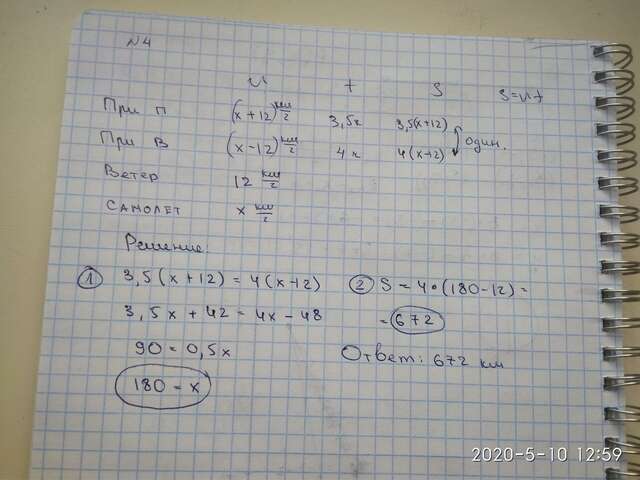 N4
V t S S=Vt
При П (x+12) км/г 3,5ч 3,5(x+12)
При В (x-12) км/г 4ч 4(x-12) один.
Ветер 12 км/г
САМОЛЕТ x км/г
Решение:
① 3,5(x+12)=4(x-12) ② S=4•(180-12)=
3,5x+42=4x-48 =672
90=0,5x Ответ: 672 км
180=x
2020-5-10 12:59